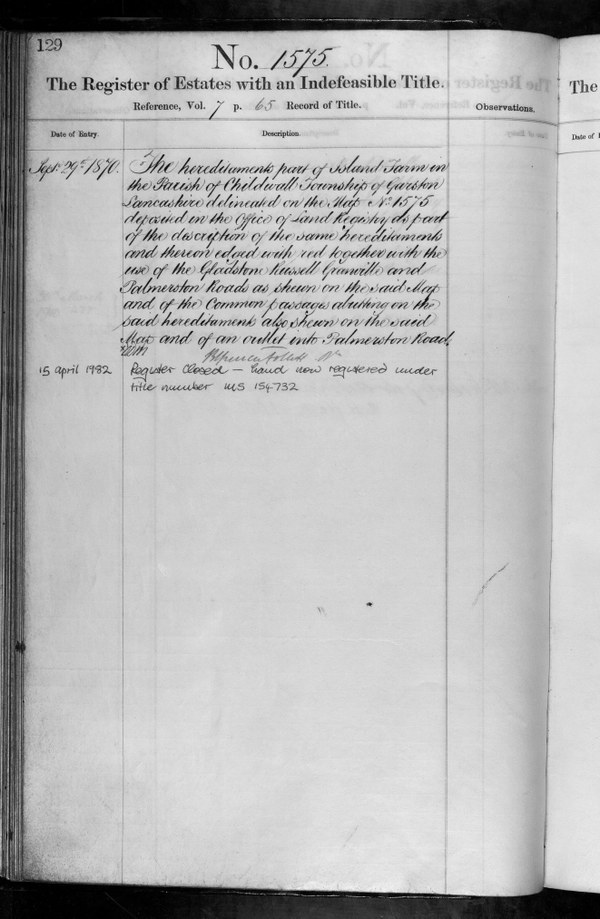 129
No. 1575.
The Register of Estates with an Indefeasible Title.
Reference, Vol. 7 p. 65 Record of Title.
Observations.
Date of Entry.
Description.
Sept. 29th 1870.
The hereditaments part of Island Farm in
the Parish of Childwall Township of Garston
Lancashire delineated on the Map No. 1575
deposited in the Office of Land Registry as part
of the discription of the same hereditaments
and thereon edged with red together with the
use of the Gladstone Russell Granville and
Palmerston Roads as shewn on the said Map
and of the Common passages abutting on the
said hereditaments also shewn on the said
Map and of an outlet into Palmerston Road.
15 April 1982
Register Closed – Land now registered under
title number MS 154732
The
Date of